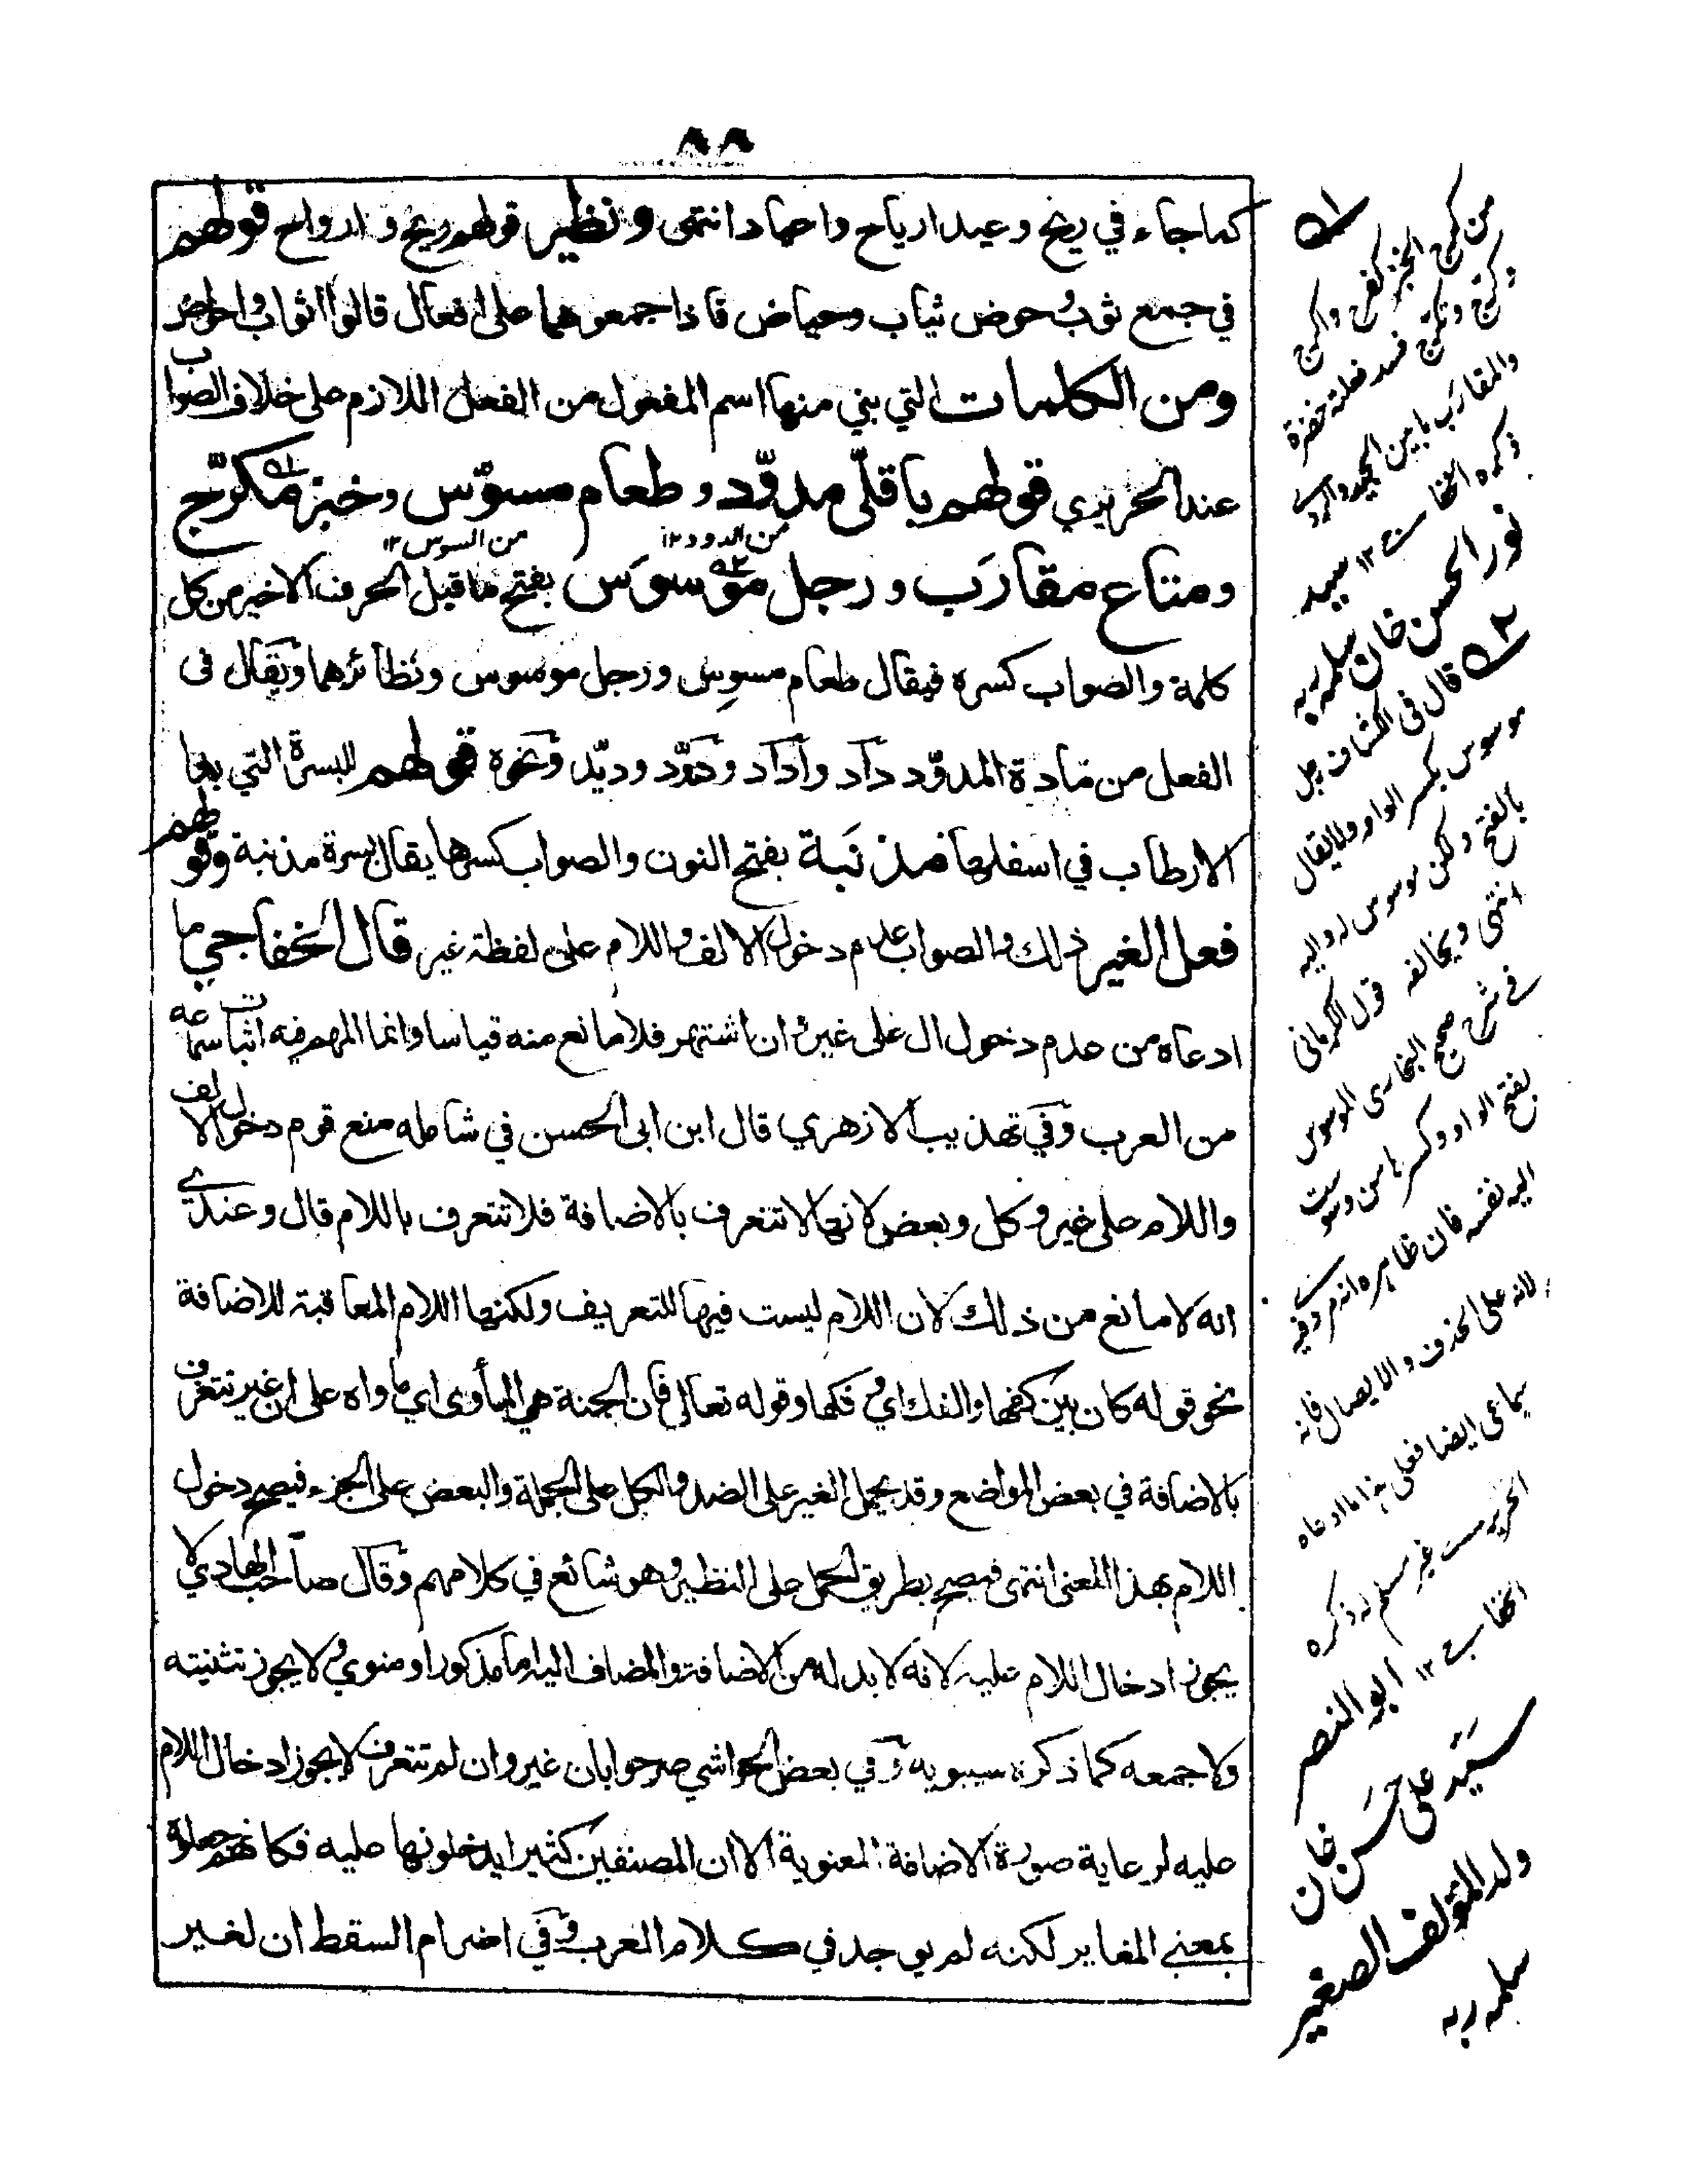 ٨٨
كما جاء في ريح وعيد ارياح واعياد انتهى ونظير قولهم ريح و ارواح قولهم
في جمع ثوب وحوض ثياب وحياض فاذا جمعوهما على افعال قالوا اثواب واحواض
ومن الكلمات التي بني منها اسم المفعول من الفعل اللازم على خلاف الصواب
عند الحريري قولهم باقلّى مدوّد و طعام مسوّس وخبز مكرّج
من الدود ١٢ من السوس ١٢
ومتاع مقارَب و رجل موسوَس بفتح ما قبل الحرف الاخير من كل
كلمة والصواب كسره فيقال طعام مسوِس ورجل موسوس ونظائرهما ويقال فى
الفعل من مادة المدوّد داد واداد ودوّد وديّد ونحوه قولهم للبسرة التي بدا
الارطاب في اسفلها مذنَبة بفتح النون والصواب كسرها يقال بسرة مذنبة وقولهم
فعل الغير ذلك والصواب عدم دخول الالف واللام على لفظة غير قال الخفاجي ما
ادعاه من عدم دخول ال على غير وان اشتهر فلا مانع منه قياسا وانما المهم فيه اثبات سماعه
من العرب وفي تهذيب الازهري قال ابن ابى الحسن في شامله منع قوم دخول الالف
واللام على غير وكل وبعض لانها لا تتعرف بالاضافة فلا تتعرف باللام قال وعندي
انه لا مانع من ذلك لان اللام ليست فيها للتعريف ولكنها اللام المعاقبة للاضافة
نحو قوله كان بين كفها والفك اي فكها وقوله تعالى فان الجنة هي المأوى اي ماواه على ان غير تتعرف
بالاضافة في بعض المواضع وقد يحمل الغير على الضد والكل على الجملة والبعض على الجزء فيصح دخول
اللام بهذا المعنى انتهى فيصح بطريق الحمل على النظير وهو شائع في كلامهم وقال صاحب الهادي لا
يجوز ادخال اللام عليه لانه لا بد له من الاضافة والمضاف اليه اما مذكور او منوي ولا يجوز تثنيته
ولا جمعه كما ذكره سيبويه وفي بعض الحواشي صرحوا بان غير وان لم تتعرف لا يجوز ادخال اللام
عليه لرعاية صورة الاضافة المعنوية الا ان المصنفين كثيرا يدخلونها عليه فكانهم جعلوه
بمعنى المغاير لكنه لم يوجد في كلام العرب وفي اضرام السقط ان لغير
من كرج الخبز كفرح واكرج
وكرّج وتكرج فسد فعلته خضرة
والمقارب ما بين الجيد والردي
ذكره الخفاجي ١٢ سيد
نور الحسن خان سلمه ربه
قال فى الكشاف رجل
موسوس بكسر الواو ولا يقال
بالفتح ولكن موسوس له واليه
انتهى ويخالفه قول الكرمانى
في شرح صحيح البخارى الموسوس
بفتح الواو وكسرها من وسوست
اليه نفسه فان ظاهره انه
لانه على الحذف والايصال فانه
سماعى ايضا فعلى هذا ما ادعاه
الحريري غير مسلم له ذكره
الخفاجي ١٢ ابو النصر
سيد على حسن خان
ولد المؤلف الصغير
سلمه ربه